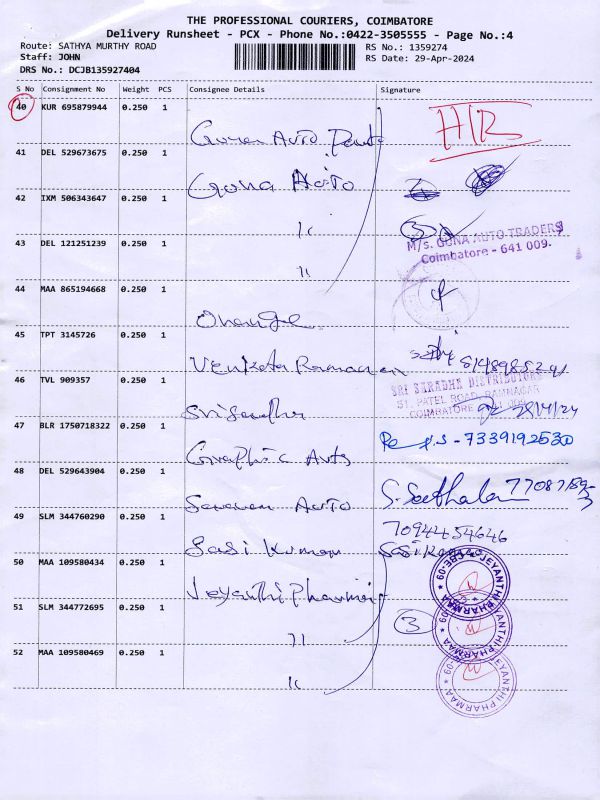 THE PROFESSIONAL COURIERS, COIMBATORE
Delivery Runsheet - PCX - Phone No.:0422-3505555 - Page No.:4
Route: SATHYA MURTHY ROAD
Staff: JOHN
DRS No.: DCJB135927404
RS No.: 1359274
RS Date: 29-Apr-2024
S No Consignment No Weight PCS Consignee Details Signature
40 KUR 695879944 0.250 1
HB
41 DEL 529673675 0.250 1
Guna Auto
42 IXM 506343647 0.250 1
M/s. GUNA AUTO TRADERS
Coimbatore - 641 009.
43 DEL 121251239 0.250 1
44 MAA 865194668 0.250 1
Orange
45 TPT 3145726 0.250 1
Venkata Raman
46 TVL 909357 1 0.250 1
SRI SARADHA DISTRIBUTORS
51, PATEL ROAD, RAMNAGAR
COIMBATORE - 641 009
47 BLR 1750718322 0.250 1
7339192530
Graphic Arts
48 DEL 529643904 0.250 1
Auto
49 SLM 344760290 0.250 1
7094454646
Sasi Kumar
50 MAA 109580434 0.250 1
Jeyanthi Pharma
51 SLM 344772695 0.250 1
3
52 MAA 109580469 0.250 1
JEYANTHI PHARMAA
JEYANTHI PHARMAA
JEYANTHI PHARMAA